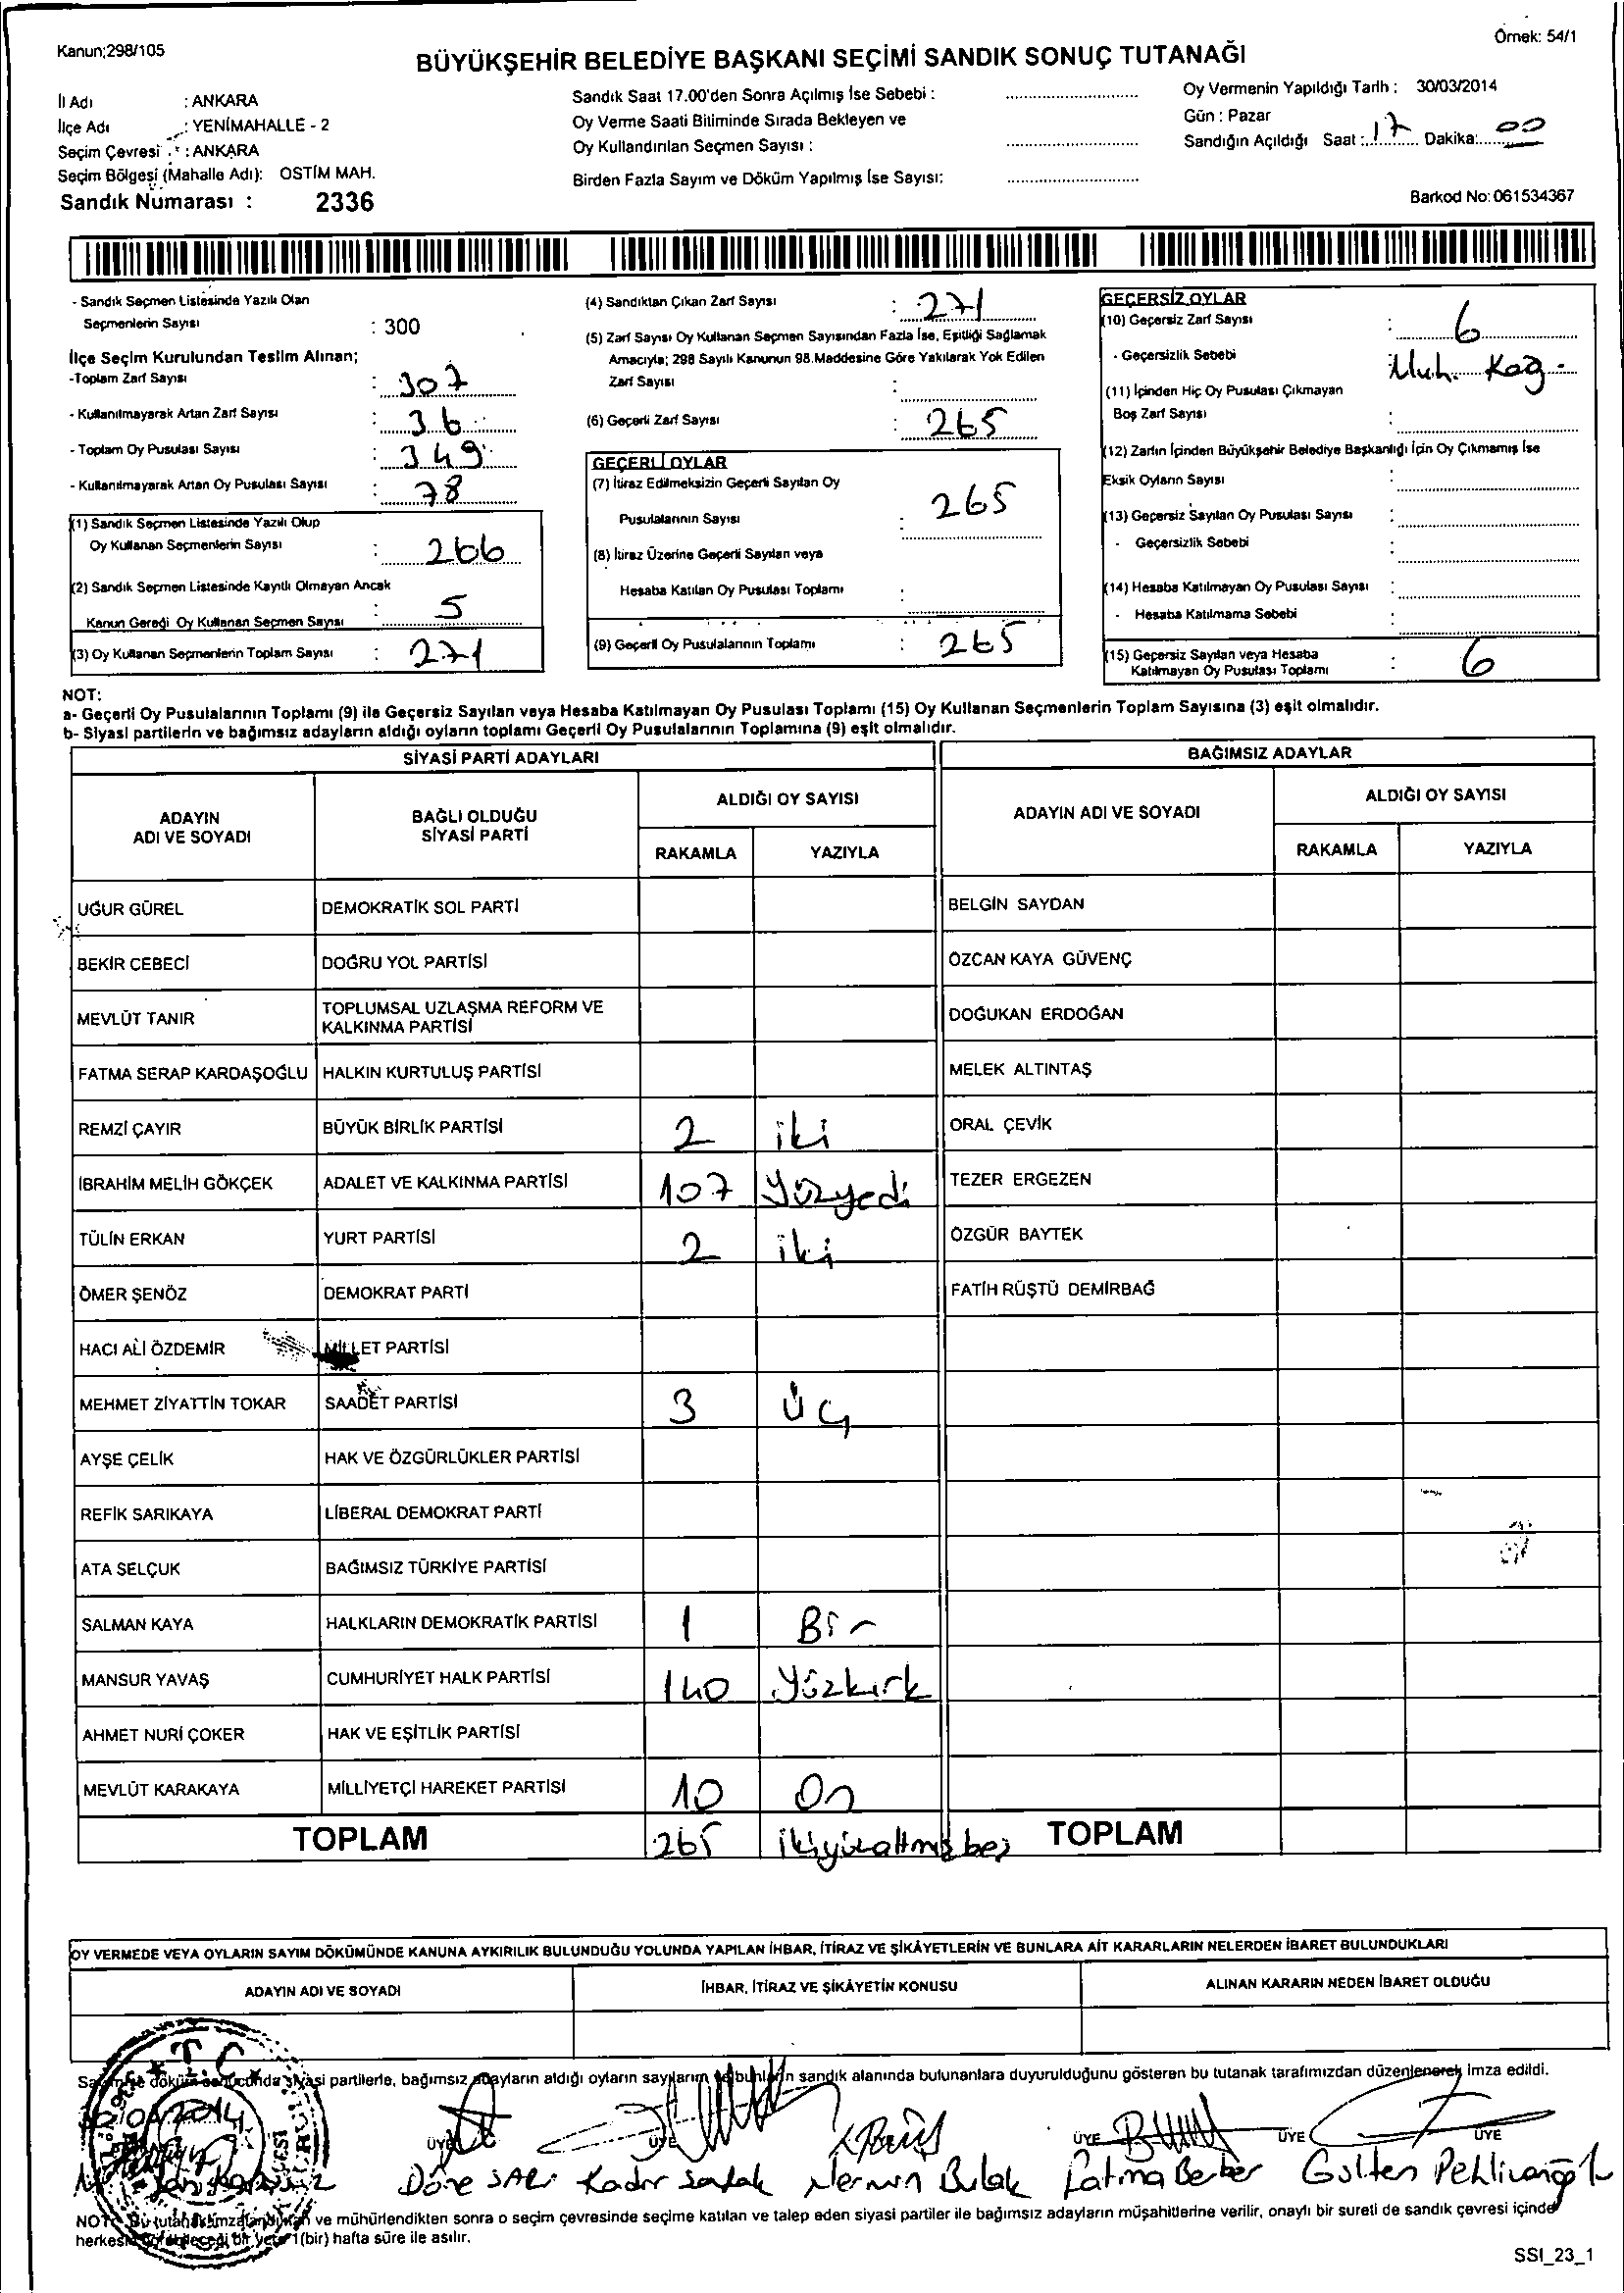 Kanun;298/105
Örnek: 54/1
BÜYÜKŞEHİR BELEDİYE BAŞKANI SEÇİMİ SANDIK SONUÇ TUTANAĞI
İl Adı : ANKARA
İlçe Adı : YENİMAHALLE - 2
Seçim Çevresi : ANKARA
Seçim Bölgesi (Mahalle Adı): OSTİM MAH.
Sandık Numarası : 2336
Sandık Saat 17.00'den Sonra Açılmış İse Sebebi :
Oy Verme Saati Bitiminde Sırada Bekleyen ve
Oy Kullandırılan Seçmen Sayısı :
Birden Fazla Sayım ve Döküm Yapılmış İse Sayısı:
Oy Vermenin Yapıldığı Tarih : 30/03/2014
Gün : Pazar
Sandığın Açıldığı Saat : 17 Dakika: 00
Barkod No: 061534367
- Sandık Seçmen Listesinde Yazılı Olan
Seçmenlerin Sayısı : 300
İlçe Seçim Kurulundan Teslim Alınan;
-Toplam Zarf Sayısı : 307
- Kullanılmayarak Artan Zarf Sayısı : 36
- Toplam Oy Pusulası Sayısı : 349
- Kullanılmayarak Artan Oy Pusulası Sayısı : 78
(1) Sandık Seçmen Listesinde Yazılı Olup
Oy Kullanan Seçmenlerin Sayısı : 266
(2) Sandık Seçmen Listesinde Kayıtlı Olmayan Ancak
Kanun Gereği Oy Kullanan Seçmen Sayısı : 5
(3) Oy Kullanan Seçmenlerin Toplam Sayısı : 271
(4) Sandıktan Çıkan Zarf Sayısı : 271
(5) Zarf Sayısı Oy Kullanan Seçmen Sayısından Fazla İse, Eşitliği Sağlamak
Amacıyla; 298 Sayılı Kanunun 98.Maddesine Göre Yakılarak Yok Edilen
Zarf Sayısı :
(6) Geçerli Zarf Sayısı : 265
GEÇERLİ OYLAR
(7) İtiraz Edilmeksizin Geçerli Sayılan Oy
Pusulalarının Sayısı : 265
(8) İtiraz Üzerine Geçerli Sayılan veya
Hesaba Katılan Oy Pusulası Toplamı :
(9) Geçerli Oy Pusulalarının Toplamı : 265
GEÇERSİZ OYLAR
(10) Geçersiz Zarf Sayısı : 6
- Geçersizlik Sebebi : Muh. Kağ.
(11) İçinden Hiç Oy Pusulası Çıkmayan
Boş Zarf Sayısı :
(12) Zarfın İçinden Büyükşehir Belediye Başkanlığı İçin Oy Çıkmamış İse
Eksik Oyların Sayısı :
(13) Geçersiz Sayılan Oy Pusulası Sayısı :
- Geçersizlik Sebebi :
(14) Hesaba Katılmayan Oy Pusulası Sayısı :
- Hesaba Katılmama Sebebi :
(15) Geçersiz Sayılan veya Hesaba
Katılmayan Oy Pusulası Toplamı : 6
NOT:
a- Geçerli Oy Pusulalarının Toplamı (9) ile Geçersiz Sayılan veya Hesaba Katılmayan Oy Pusulası Toplamı (15) Oy Kullanan Seçmenlerin Toplam Sayısına (3) eşit olmalıdır.
b- Siyasi partilerin ve bağımsız adayların aldığı oyların toplamı Geçerli Oy Pusulalarının Toplamına (9) eşit olmalıdır.
SİYASİ PARTİ ADAYLARI BAĞIMSIZ ADAYLAR
ADAYIN ADI VE SOYADI BAĞLI OLDUĞU SİYASİ PARTİ ALDIĞI OY SAYISI ADAYIN ADI VE SOYADI ALDIĞI OY SAYISI
RAKAMLA YAZIYLA RAKAMLA YAZIYLA
UĞUR GÜREL DEMOKRATİK SOL PARTİ BELGİN SAYDAN
BEKİR CEBECİ DOĞRU YOL PARTİSİ ÖZCAN KAYA GÜVENÇ
MEVLÜT TANIR TOPLUMSAL UZLAŞMA REFORM VE KALKINMA PARTİSİ DOĞUKAN ERDOĞAN
FATMA SERAP KARDAŞOĞLU HALKIN KURTULUŞ PARTİSİ MELEK ALTINTAŞ
REMZİ ÇAYIR BÜYÜK BİRLİK PARTİSİ 2 iki ORAL ÇEVİK
İBRAHİM MELİH GÖKÇEK ADALET VE KALKINMA PARTİSİ 107 Yüzyedi TEZER ERGEZEN
TÜLİN ERKAN YURT PARTİSİ 2 iki ÖZGÜR BAYTEK
ÖMER ŞENÖZ DEMOKRAT PARTİ FATİH RÜŞTÜ DEMİRBAĞ
HACI ALİ ÖZDEMİR MİLLET PARTİSİ
MEHMET ZİYATTİN TOKAR SAADET PARTİSİ 3 Üç
AYŞE ÇELİK HAK VE ÖZGÜRLÜKLER PARTİSİ
REFİK SARIKAYA LİBERAL DEMOKRAT PARTİ
ATA SELÇUK BAĞIMSIZ TÜRKİYE PARTİSİ
SALMAN KAYA HALKLARIN DEMOKRATİK PARTİSİ 1 Bir
MANSUR YAVAŞ CUMHURİYET HALK PARTİSİ 140 Yüzkırk
AHMET NURİ ÇOKER HAK VE EŞİTLİK PARTİSİ
MEVLÜT KARAKAYA MİLLİYETÇİ HAREKET PARTİSİ 10 On
TOPLAM 265 ikiyüzaltmışbeş TOPLAM
OY VERMEDE VEYA OYLARIN SAYIM DÖKÜMÜNDE KANUNA AYKIRILIK BULUNDUĞU YOLUNDA YAPILAN İHBAR, İTİRAZ VE ŞİKÂYETLERİN VE BUNLARA AİT KARARLARIN NELERDEN İBARET BULUNDUKLARI
ADAYIN ADI VE SOYADI İHBAR, İTİRAZ VE ŞİKÂYETİN KONUSU ALINAN KARARIN NEDEN İBARET OLDUĞU
T.C.
siyasi partilerle, bağımsız adayların aldığı oyların sayılarını bunların sandık alanında bulunanlara duyurulduğunu gösteren bu tutanak tarafımızdan düzenlenerek imza edildi.
ÜYE ÜYE ÜYE ÜYE ÜYE
Döne SARI Kadir Nermin Bulak Fatma Berber Gülten Pehlivanoğlu
NOT: ve mühürlendikten sonra o seçim çevresinde seçime katılan ve talep eden siyasi partiler ile bağımsız adayların müşahitlerine verilir, onaylı bir sureti de sandık çevresi içinde
bir yere 1(bir) hafta süre ile asılır.
SSI_23_1